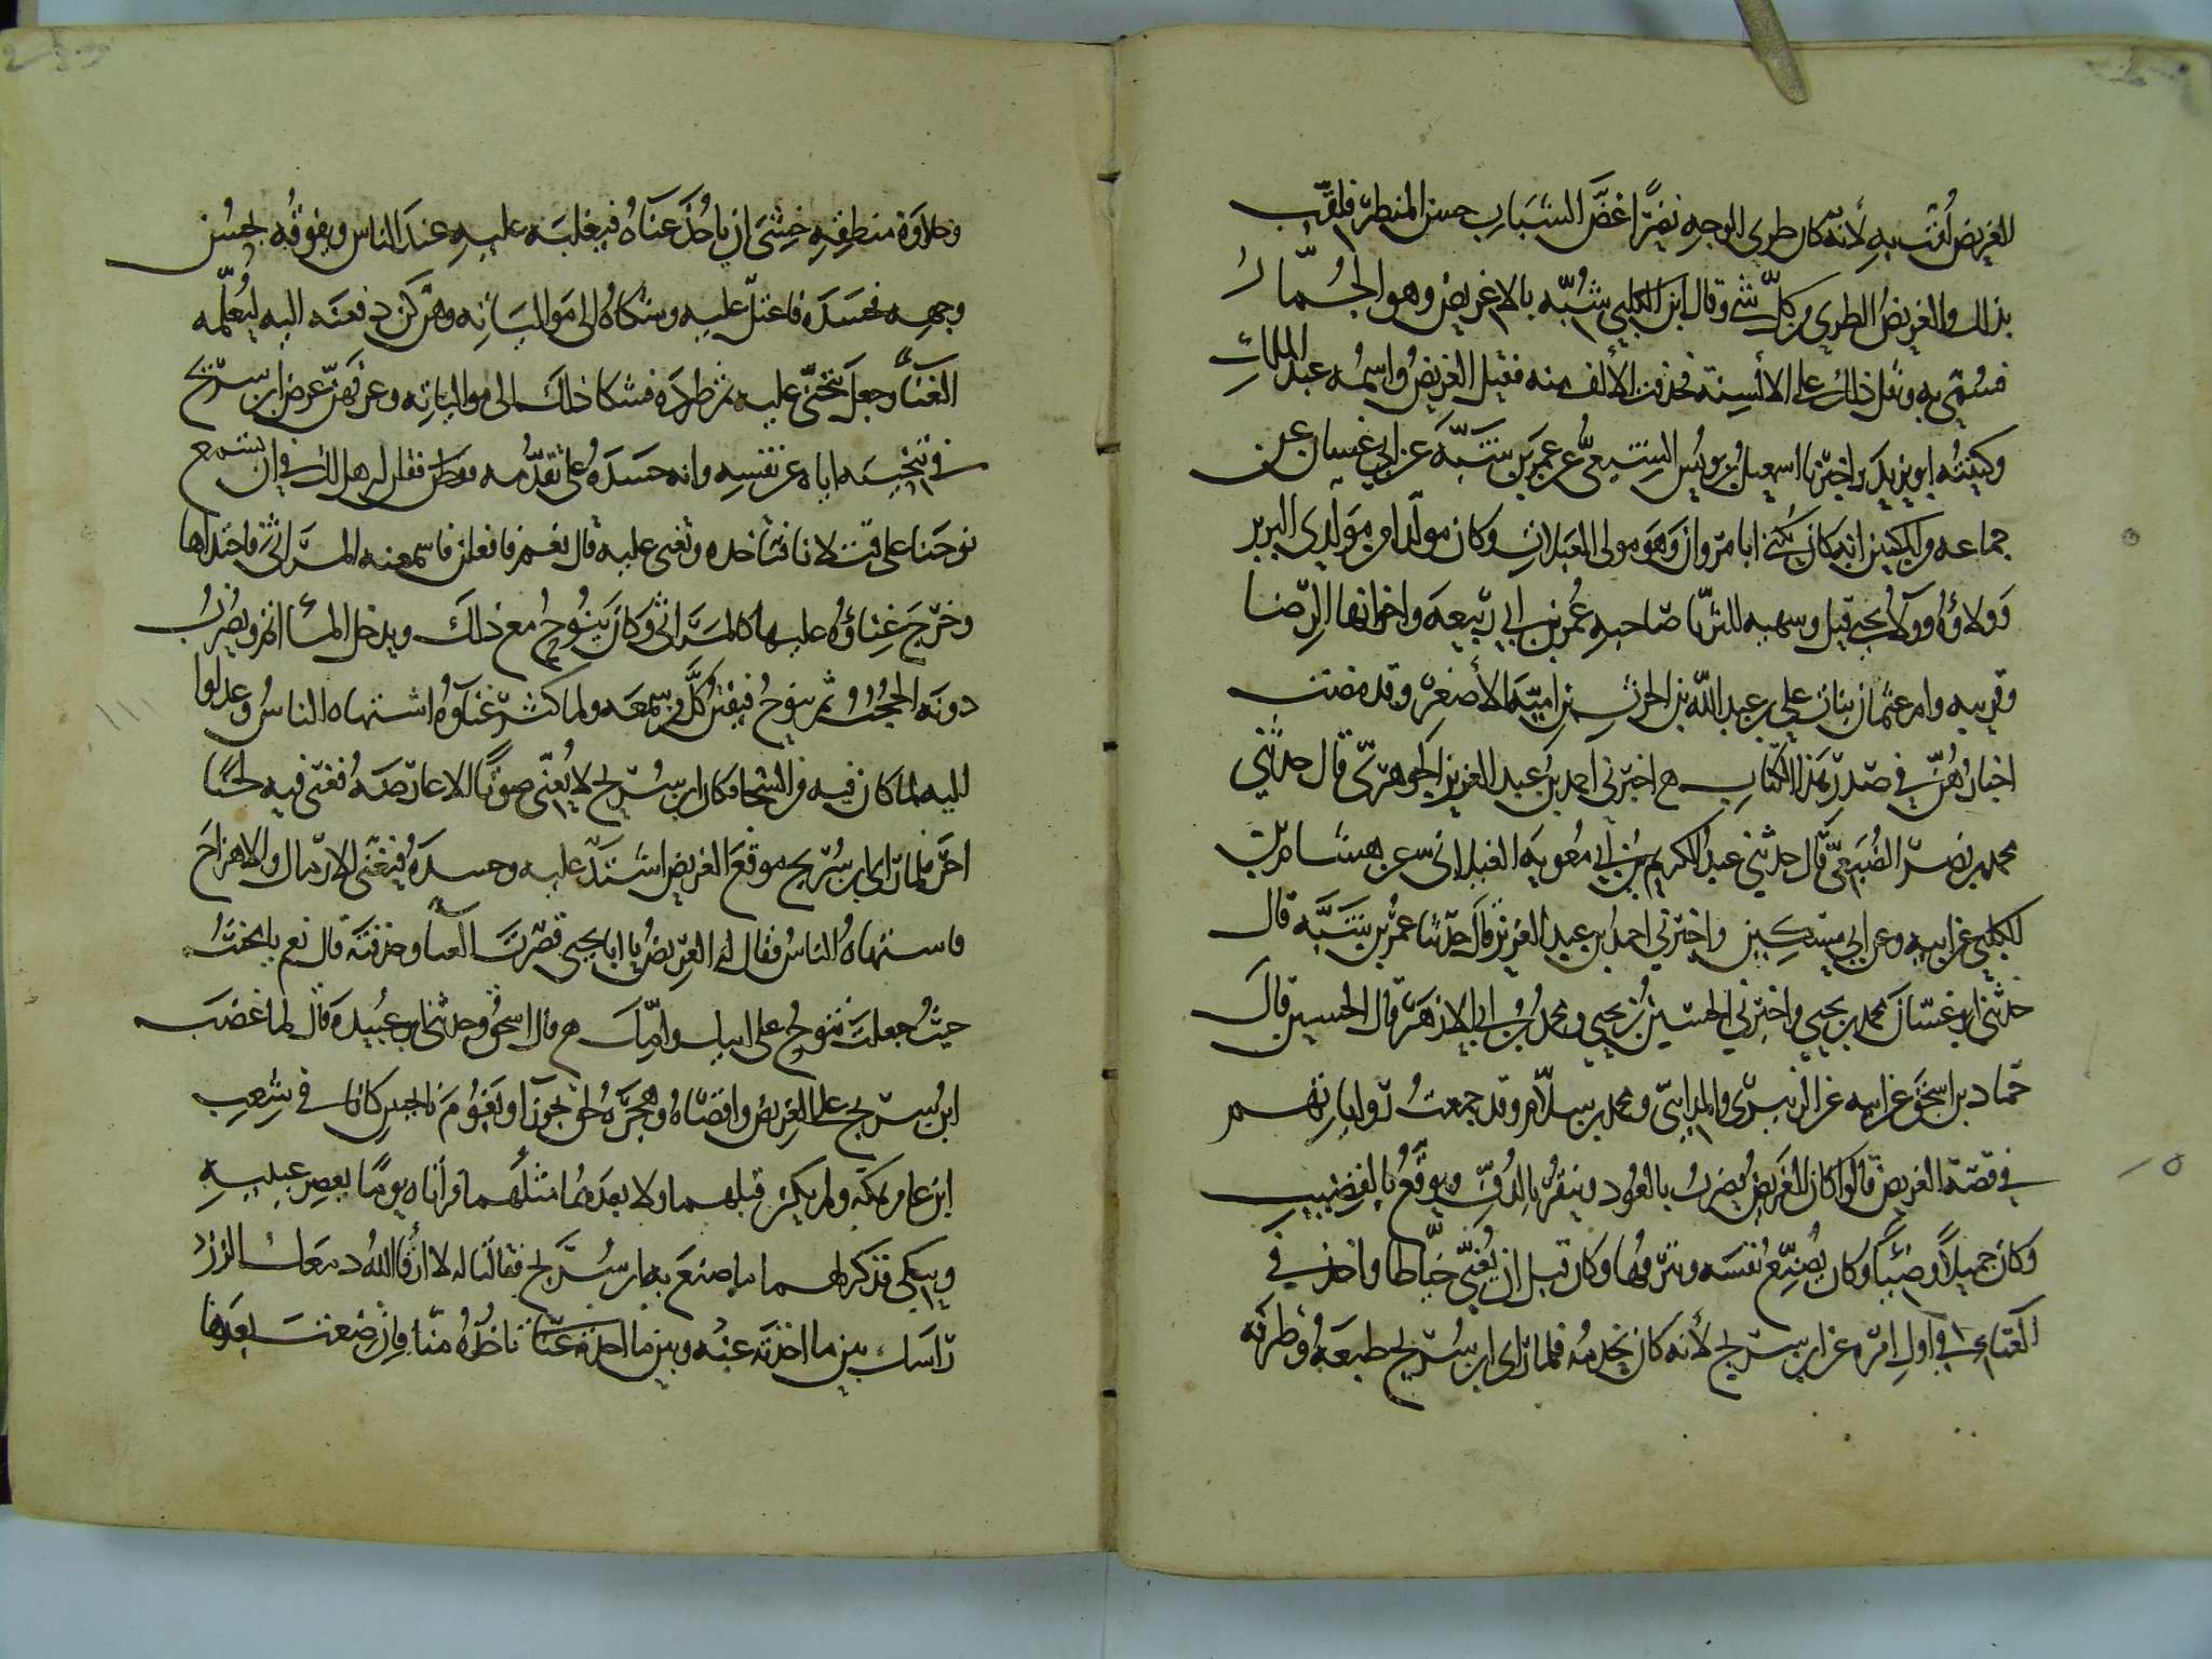 الغريض لُقّب به لأنه كان طري الوجه نضرًا غضّ الشباب حسن المنظر فلقّب
بذلك والغريض الطري من كلّ شيء وقال ابن الكلبي شُبّه بالاغريض وهو الجُمّار
فسُمّي به وثقل ذلك على الألسنة فحذفت الألف منه فقيل الغريض واسمه عبد الملك
وكنيته ابو يزيد اخبرنا اسمعيل بن يونس الشيعيّ عن عمر بن شبّة عن ابي غسان عن
جماعه من المكيين انه كان يكنى ابا مروان وهو مولى العبلات وكان مولدا من مولدي البربر
وولاؤه وولاء يحيى قيل وسميه للثريّا صاحبه عمر بن ابي ربيعه واخواتها الرضا
وقريبه وام عثمان بنات علي بن عبد الله بن الحرث بن اميّة الأصغر وقد مضت
اخبارهنّ في صدر هذا الكتاب اخبرني احمد بن عبد العزيز الجوهري قال حدثني
محمد بن نصر الضبعيّ قال حدثني عبد الكريم بن أبي معويه الغلابي عن هشام بن
الكلبي عن ابيه وعن ابي مسكين واخبرني احمد بن عبد العزيز قال حدّثنا عمر بن شبّه قال
حدثني ابو غسّان محمد بن يحيى واخبرني الحسين بن يحيى ومحمد بن ابي الازهر قال الحسين قال
حمّاد بن اسحق عن ابيه عن الزبيري والمدايني ومحمد بن سلّام وقد جمعت رواياتهم
في قصّة الغريض قالوا كان الغريض يضرب بالعود وينقر بالدف ويوقّع بالقضيب
وكان جميلًا وضيئًا وكان يُصنّع نفسه ويبرقها وكان قبل ان يُغنّي خيّاطا واخذ في
الغناء في أول امره عن ابن سريج لأنه كان يخدمه فلما رأى ابن سُريج طبعه وظرفه
وحلاوة منطقه خشي ان ياخذ غناه فيغلبه عليه عند الناس ويفوقه بحسن
وجهه فحسده فاعتلّ عليه وشكاه الى موالياته وهن كن دفعنه اليه ليُعلّمه
الغناء وجعل يتجنّى عليه ثم طرده فشكا ذلك الى موالياته وعرفهن غرض ابن سريج
في تنحيته اياه عن نفسه وانه حسده على تقدّمه فقلن له هل لك في ان تسمع
نوحنا على قتلانا فتأخذه وتغني عليه قال نعم فافعلن فاسمعنه المراثي فاحتذاها
وخرّج غناؤه عليها كالمراثي وكان ينوح مع ذلك ويدخل المأاتم وتضرب
دونه الحجب ثم ينوح فيفتن كلّ من سمعه ولما كثر غناؤه اشتهاه الناس وعدلوا
اليه لما كان فيه من الشجا وكان ابن سريج لا يُغنّى صوتًا الا عارضه فغنّى فيه لحنًا
اخر فلما رأى ابن سريج موقع الغريض اشتدّ عليه وحسده فغنّى الارمال والاهزاج
فاشتهاه الناس فقال له الغريض يا ابا يحيى قصّرت الغنا وحذفته قال نعم يا مخنّث
حيث جعلت تنوح على ابيك وامّك قال اسحق وحدثني ابو عُبيدة قال لما غضب
ابن سريج على الغريض واقصاه وهجره لحق بحوراء وبغوم ناحيتن كانتا في شعب
ابن عامر بمكه ولم يكن قبلهما ولا بعدهما مثلهما فرأتاه يومًا يعصر عينيه
ويبكي فذكر لهما ما صنع به ابن سُريج فقالتا له لا أرقأ الله دمعك الزز
رأسك بين ما اخذته عنه وبين ما اخذته عنّا ناظره منّا فان ضعت بعدها